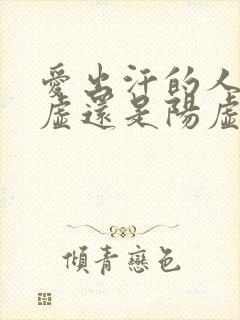 愛出汗的人
虛還是陽虛
傾青戀色